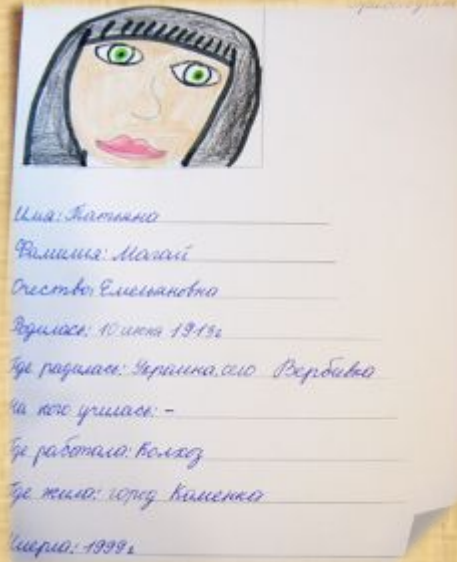 Имя: Татьяна
Фамилия: Магай
Очество: Емельяновна
Родилась: 10 июня 1913г
Где радилась: Украина, село Вербивка
На кого училась: -
Где работала: Колхоз
Где жила: город Каменка
Умерла: 1999г